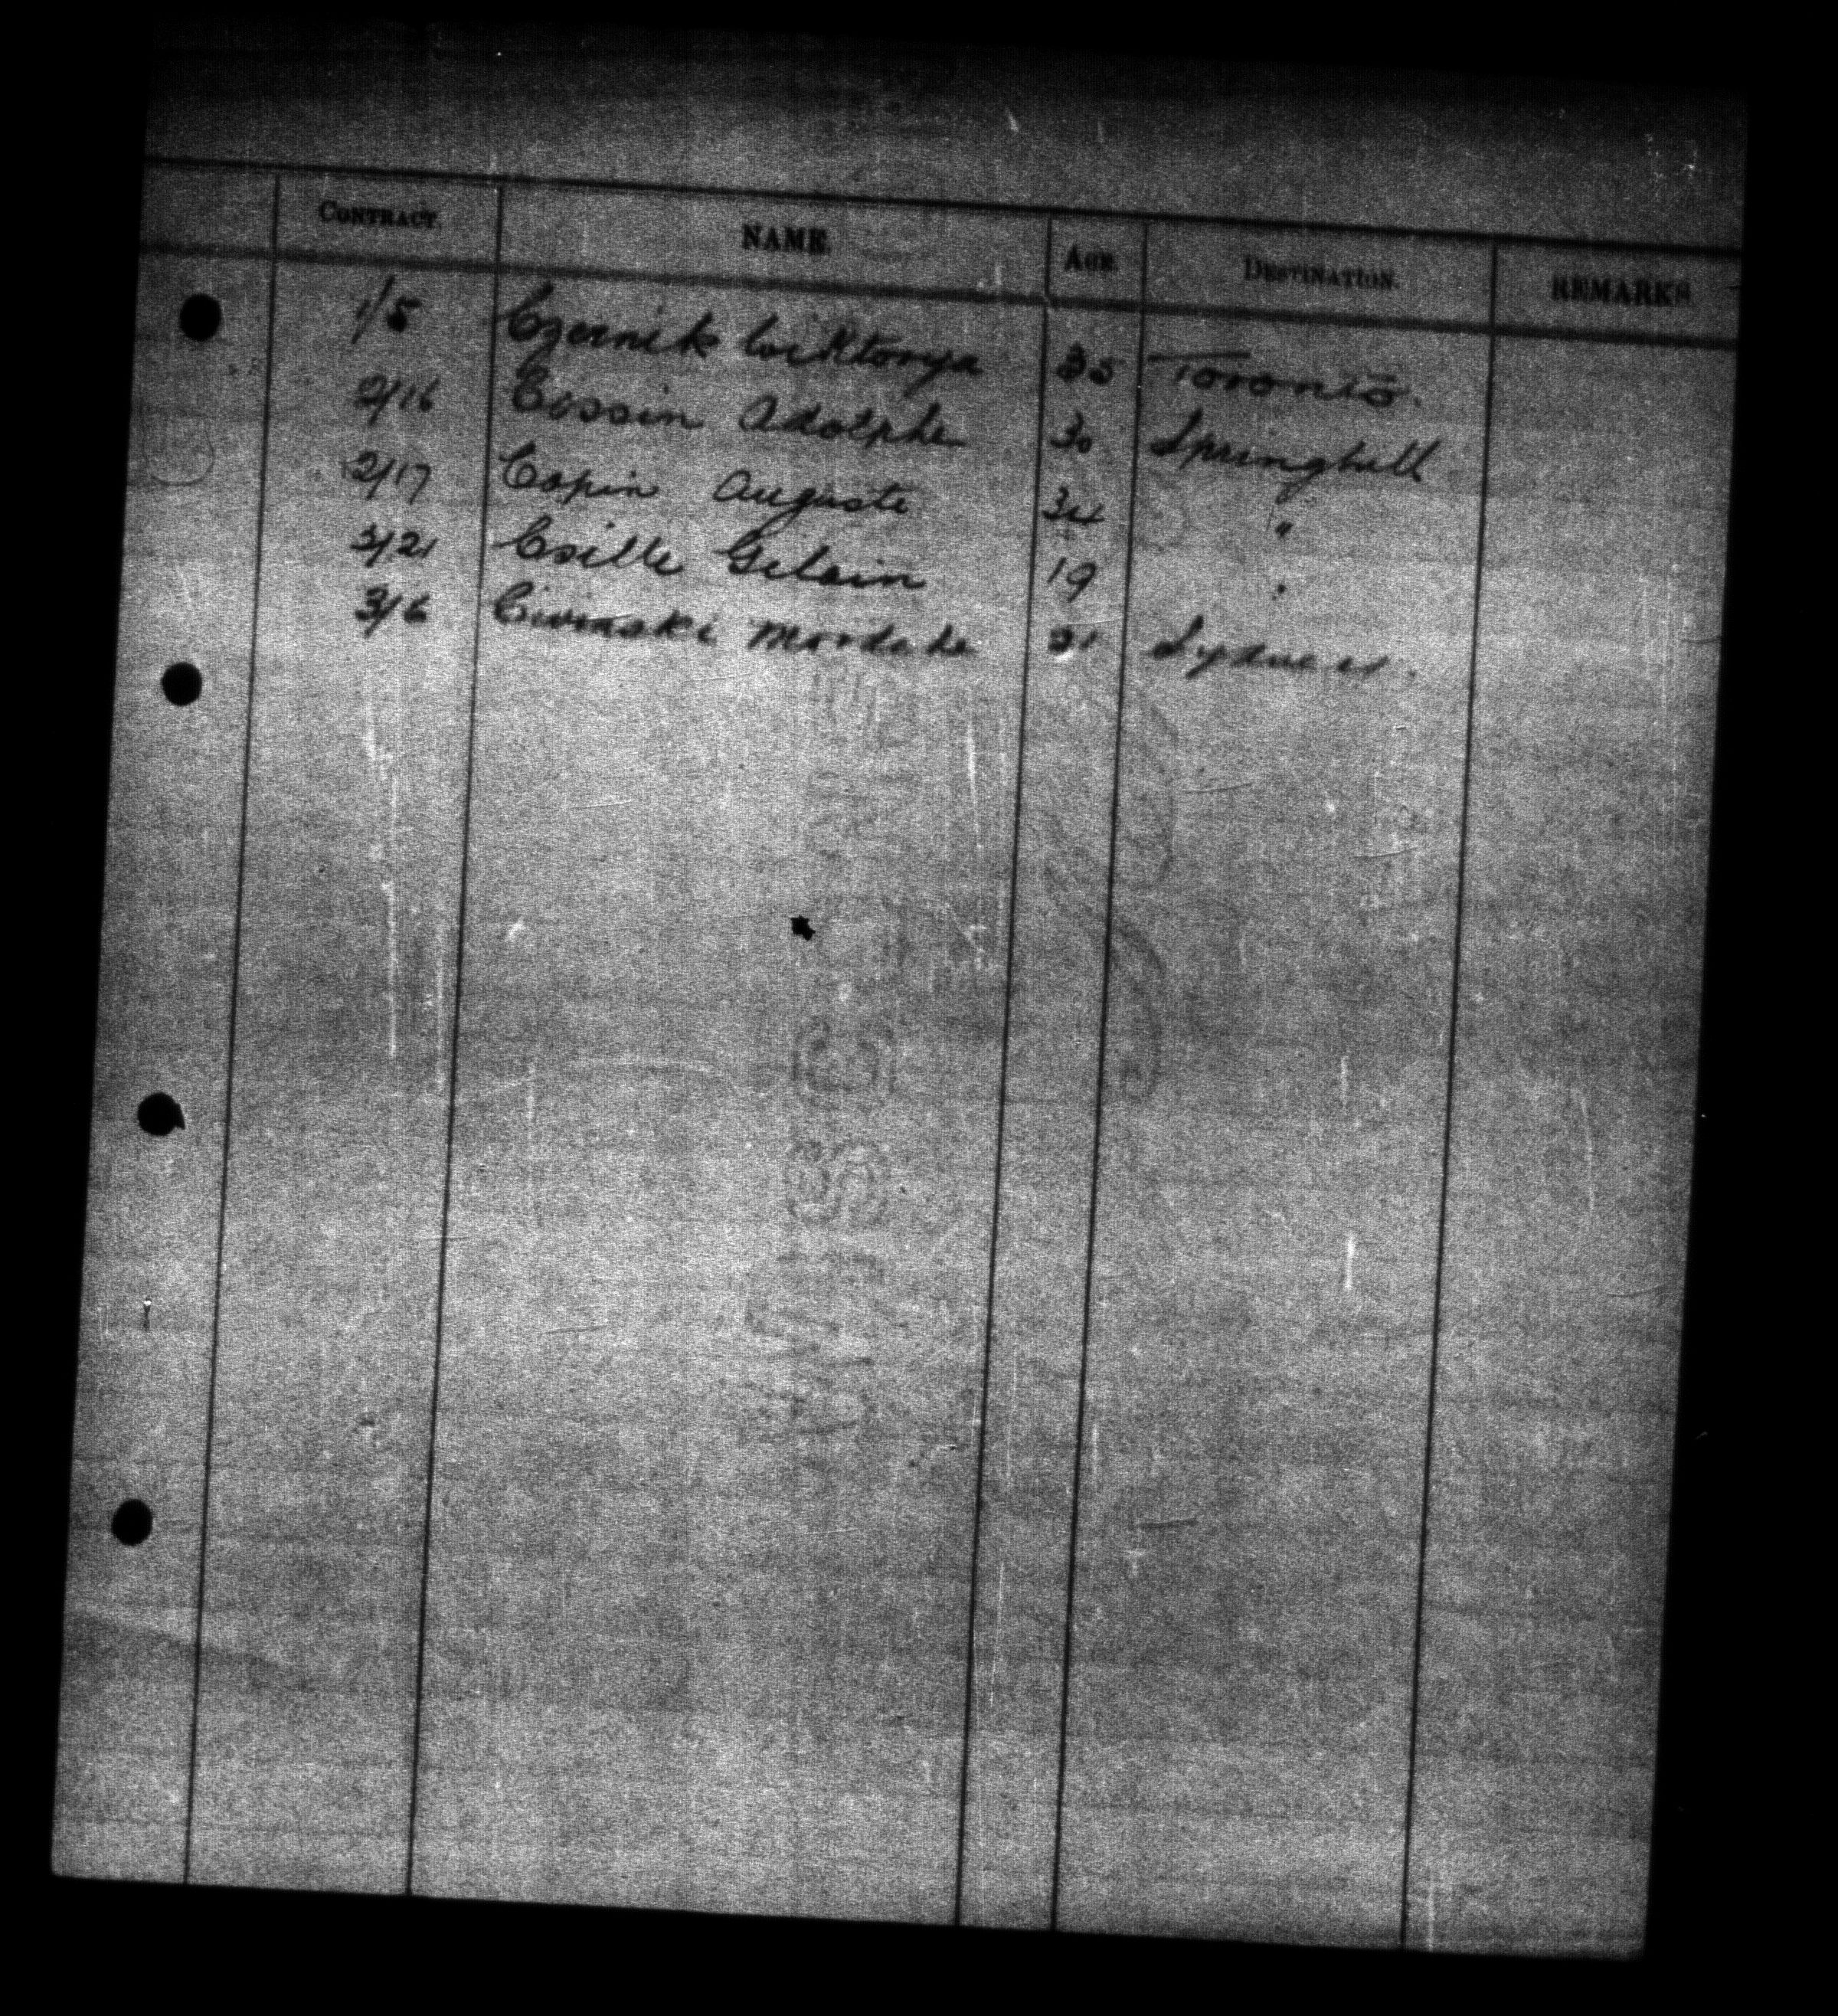 CONTRACT. NAME. AGE. DESTINATION. REMARKS
1/5 Czernik Wiktorya 35 Toronto.
2/16 Cossin Adolphe 30 Springhill
2/17 Copin Auguste 34 "
3/21 Csille Gelain 19 "
3/6 Civinski Mordche 21 Sydney.